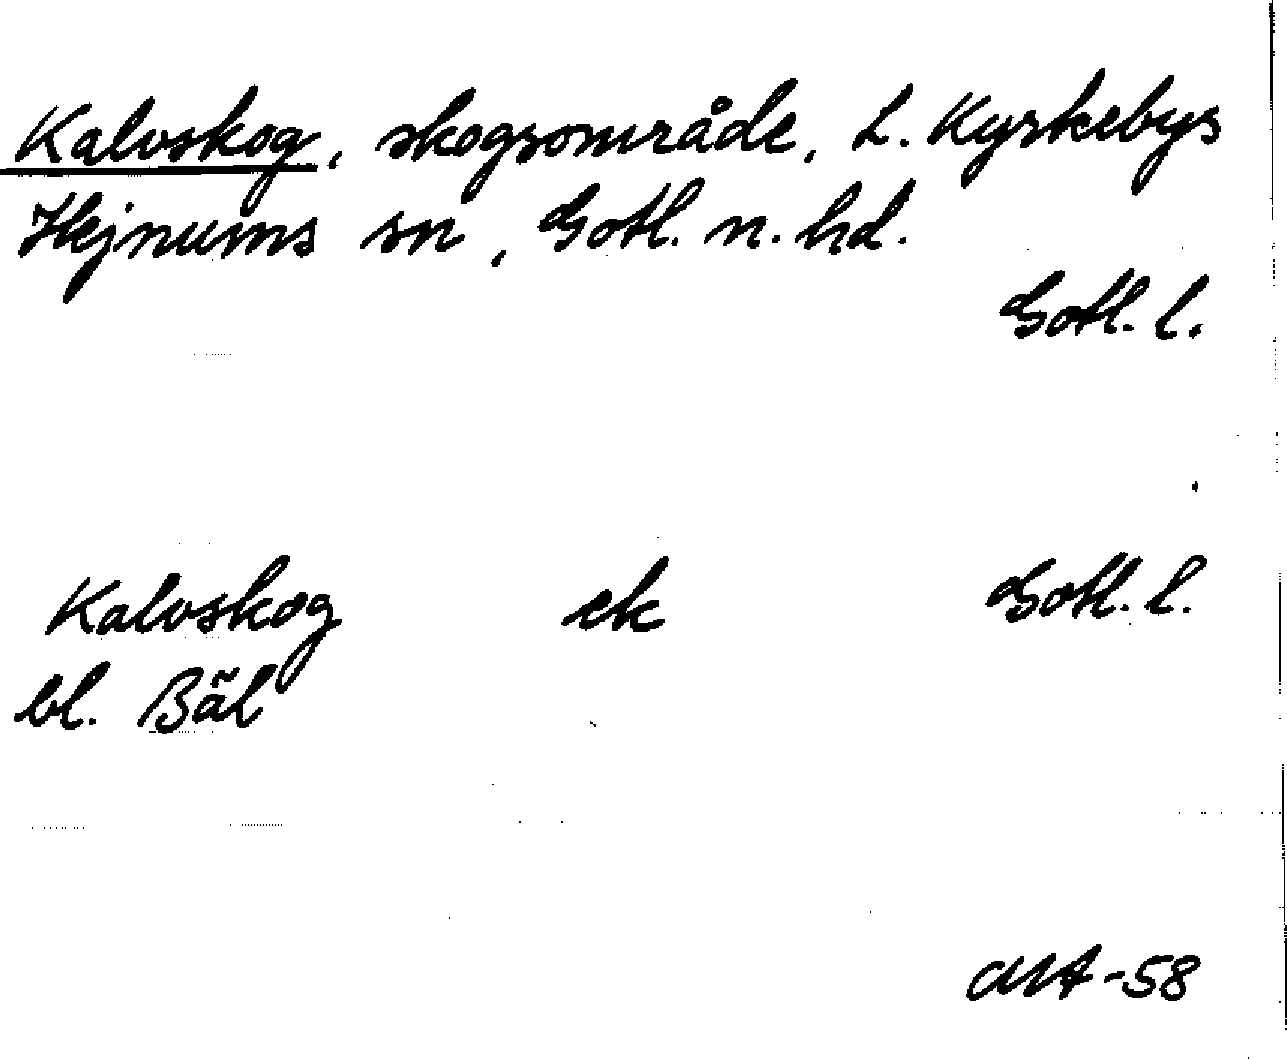 Kalvskog, skogsområde, L. Kyrkebys
Hejnums sn, Gotl. n. hd.
Gotl. l.
Kalvskog ek Gotl. l.
bl. Bäl
-58